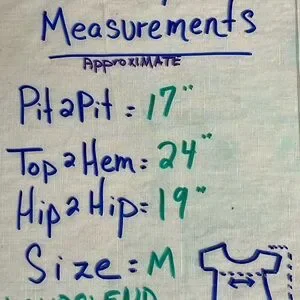 Measurements
ApproxIMATE
Pit2Pit = 17"
Top2Hem = 24"
Hip2Hip = 19"
Size = M